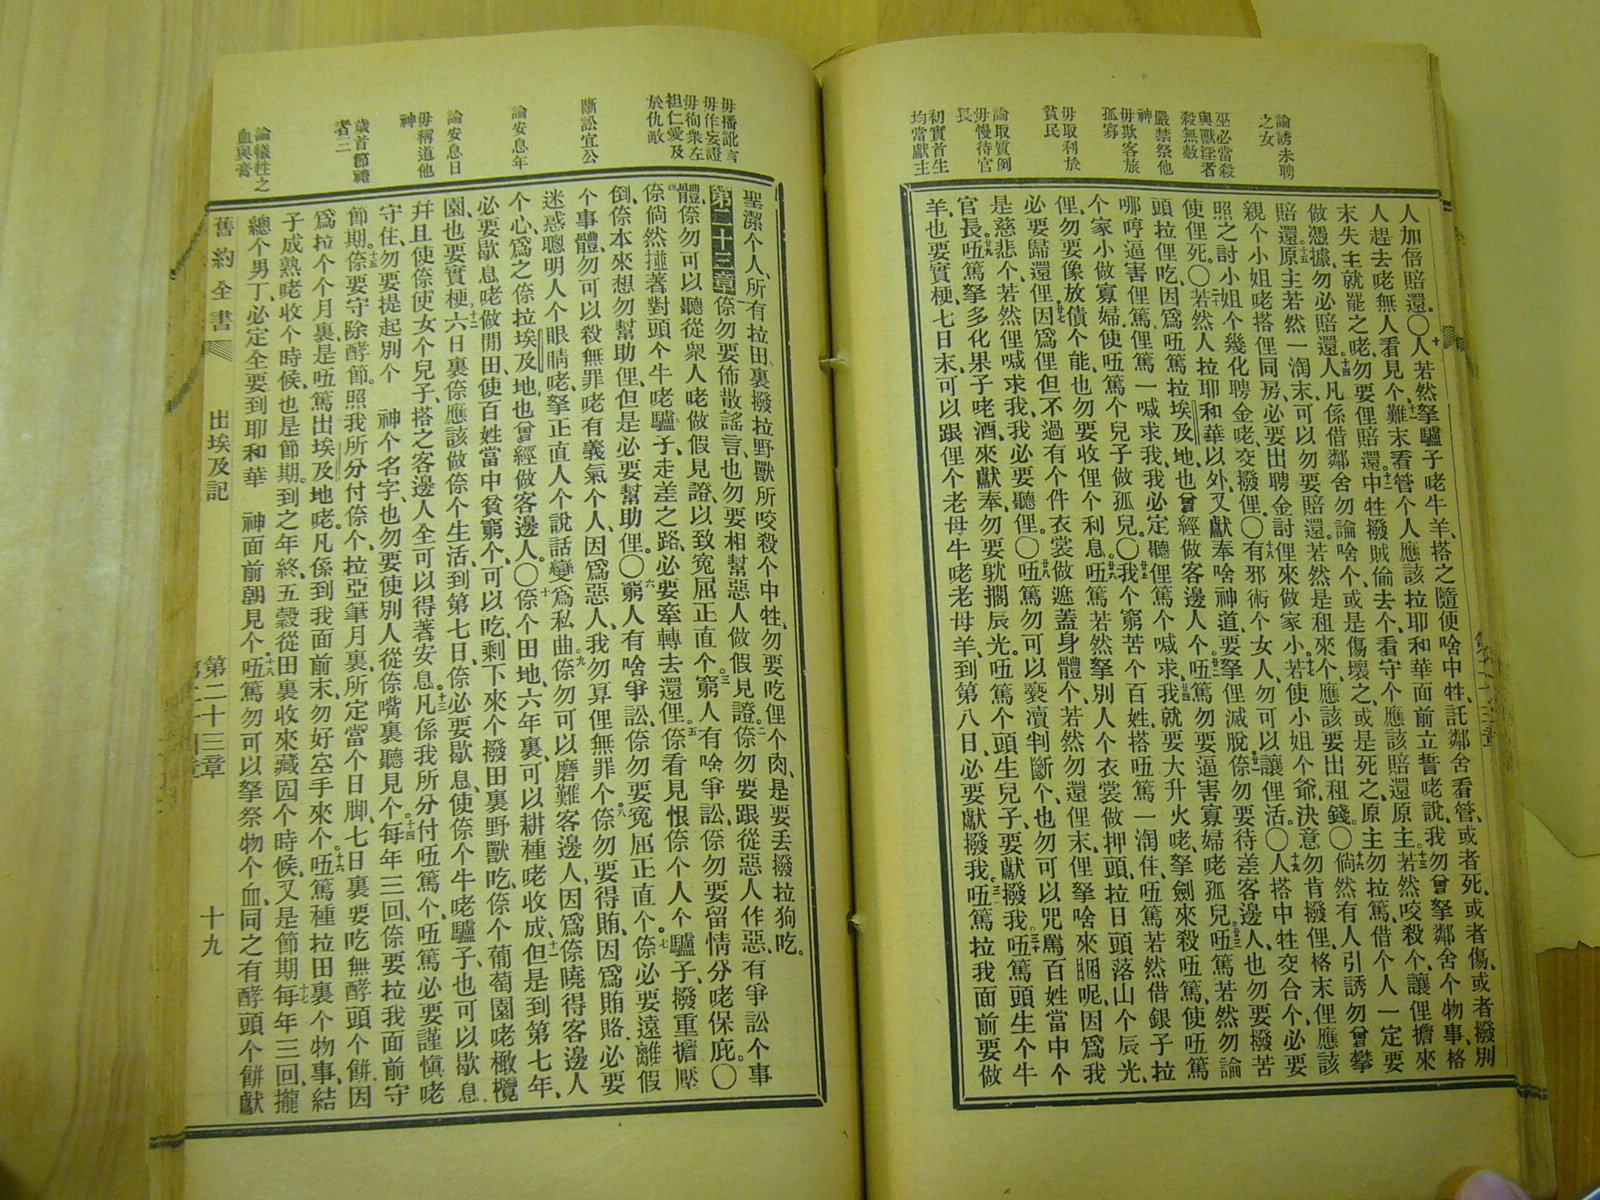 論誘未聘
之女
巫必當殺
與獸淫者
殺無赦
嚴禁祭他
神
毋欺客旅
孤寡
毋取利於
貧民
論取質例
毋慢待官
長
初實首生
均當獻主
人加倍賠還。〇十人若然拏驢子咾牛羊、搭之隨便啥中牲、託鄰舍看管、或者死、或者傷、或者撥別
人趕去咾無人看見个難末看管个人應該拉耶和華面前立誓咾說、我勿曾拏鄰舍个物事、格
末失主就罷之咾、勿要俚賠還。十二中牲撥賊偷去个看守个應該賠還原主。十三若然咬殺个讓俚擔來
做憑據、勿必賠還。十四人凡係借鄰舍勿論啥个、或是傷壞之、或是死之、原主勿拉篤、借个人一定要
賠還。十五原主若然一淘末、可以勿要賠還。若然是租來个、應該要出租錢。〇十六倘然有人引誘勿曾攀
親个小姐咾搭俚同房、必要出聘金討俚來做家小。十七若使小姐个爺決意勿肯撥俚、格末俚應該
照之討小姐个幾化聘金咾、交撥俚。〇十八有邪術个女人、勿可以讓俚活。〇十九人搭中牲交合个、必要
使俚死。〇二十若然人拉耶和華以外、又獻奉啥神道、要拏俚滅脫。廿一倷勿要待差客邊人、也勿要撥苦
頭拉俚吃、因爲𠮶篤拉埃及地、也曾經做客邊人个。廿二𠮶篤勿要逼害寡婦咾孤兒。廿三𠮶篤若然勿論
哪哼逼害俚篤、俚篤一喊求我、我必定聽俚篤个喊求、廿四我就要大升火咾、拏劍來殺𠮶篤、使𠮶篤
个家小做寡婦、使𠮶篤个兒子做孤兒。〇廿五我个窮苦个百姓、搭𠮶篤一淘住、𠮶篤若然借銀子拉
俚、勿要像放債个能、也勿要收俚个利息。廿六𠮶篤若然拏別人个衣裳做押頭、拉日頭落山个辰光、
必要歸還俚。廿七因爲俚但不過有个件衣裳做遮蓋身體个、若然勿還俚末、俚拏啥來睏呢、因爲我
是慈悲个、若然俚喊求我、我必要聽俚。〇廿八𠮶篤勿可以褻瀆判斷个、也勿可以咒罵百姓當中个
官長。廿九𠮶篤拏多化果子咾酒、來獻奉、勿要躭擱辰光。𠮶篤个頭生兒子、要獻撥我。三十𠮶篤頭生个牛
羊、也要實梗、七日末、可以跟俚个老母牛咾老母羊、到第八日、必要獻撥我。卅一𠮶篤拉我面前要做
毋播訛言
毋作妄證
毋徇衆左
袒仁愛及
於仇敵
斷訟宜公
論安息年
論安息日
毋稱道他
神
歲首節禮
者三
論犧牲之
血與膏
聖潔个人、所有拉田裏撥拉野獸所咬殺个中牲、勿要吃俚个肉、是要丟撥拉狗吃。
第二十三章 一倷勿要佈散謠言、也勿要相幫惡人做假見證。二倷勿要跟從惡人作惡、有爭訟个事
體、倷勿可以聽從衆人咾做假見證、以致寃屈正直个。三窮人有啥爭訟、倷勿要留情分咾保庇。〇
四倷倘然搪著對頭个牛咾驢子、走差之路、必要牽轉去還俚。五倷看見恨倷个人个驢子、撥重擔壓
倒、倷本來想勿幫助俚、但是必要幫助俚。〇六窮人有啥爭訟、倷勿要寃屈正直个。七倷必要遠離假
个事體、勿可以殺無罪咾有義氣个人、因爲惡人、我勿算俚無罪个。八倷勿要得賄、因爲賄賂、必要
迷惑聰明人个眼睛咾、拏正直人个說話變爲私曲。九倷勿可以磨難客邊人、因爲倷曉得客邊人
个心、爲之倷拉埃及地、也曾經做客邊人。〇十倷个田地、六年裏、可以耕種咾收成、十一但是到第七年、
必要歇息咾做閒田、使百姓當中貧窮个、可以吃、剩下來个撥田裏野獸吃、倷个葡萄園咾橄欖
園、也要實梗。十二六日裏倷應該做倷个生活、到第七日、倷必要歇息、使倷个牛咾驢子、也可以歇息
幷且使倷使女个兒子、搭之客邊人、全可以得著安息。十三凡係我所分付𠮶篤个、𠮶篤必要謹愼咾
守住、勿要提起別个 神个名字、也勿要使別人從倷嘴裏聽見个。十四每年三回、倷要拉我面前守
節期。十五倷要守除酵節。照我所分付倷个、拉亞筆月裏、所定當个日脚、七日裏要吃無酵頭个餅、因
爲拉个个月裏、是𠮶篤出埃及地咾。凡係到我面前末、勿好空手來个。十六𠮶篤種拉田裏个物事、結
子成熟咾收个時候、也是節期。到之年終、五穀從田裏收來藏囥个時候、又是節期。十七每年三回、攏
總个男丁、必定全要到耶和華 神面前朝見个。十八𠮶篤勿可以拏祭物个血、同之有酵頭个餅獻
舊約全書
出埃及記
第二十三章
十九